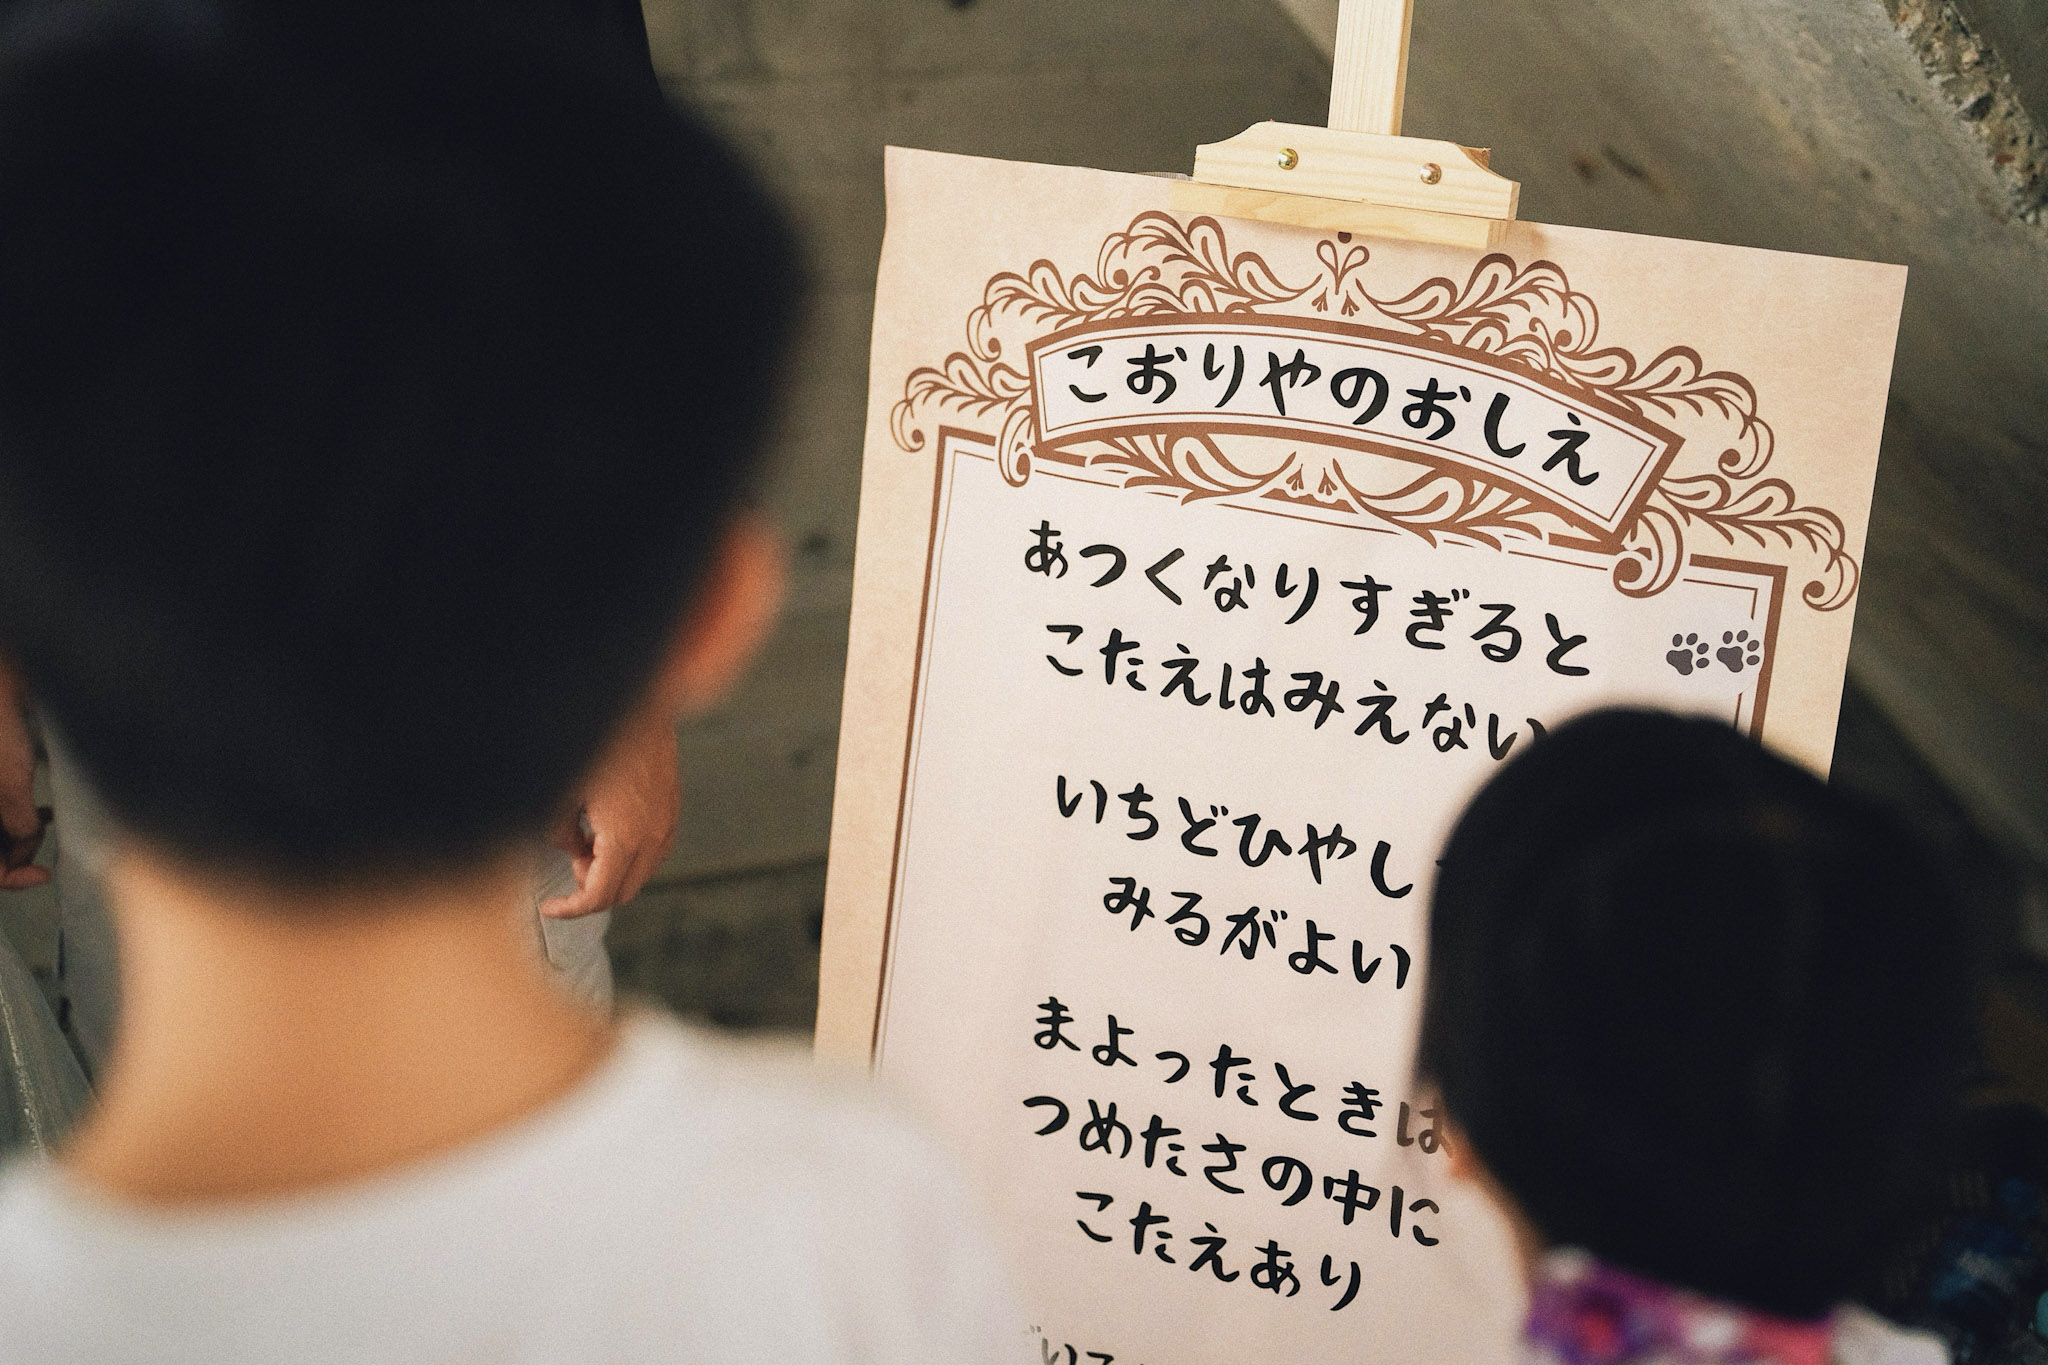 こおりやのおしえ
あつくなりすぎると
こたえはみえない
いちどひやし
みるがよい
まよったときは
つめたさの中に
こたえあり